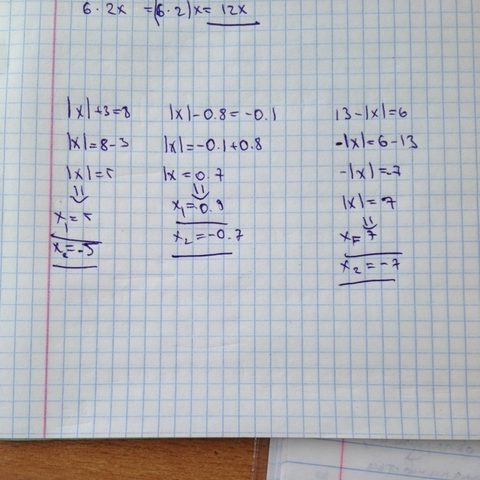 6 · 2x = (6 · 2)x = 12x
|x|+3=8
|x|=8-3
|x|=5
⇓
x₁=5
x₂=-5
|x|-0.8=-0.1
|x|=-0.1+0.8
|x=0.7
⇓
x₁=0.9
x₂=-0.7
13-|x|=6
-|x|=6-13
-|x|=-7
|x|=7
⇓
x₁=7
x₂=-7